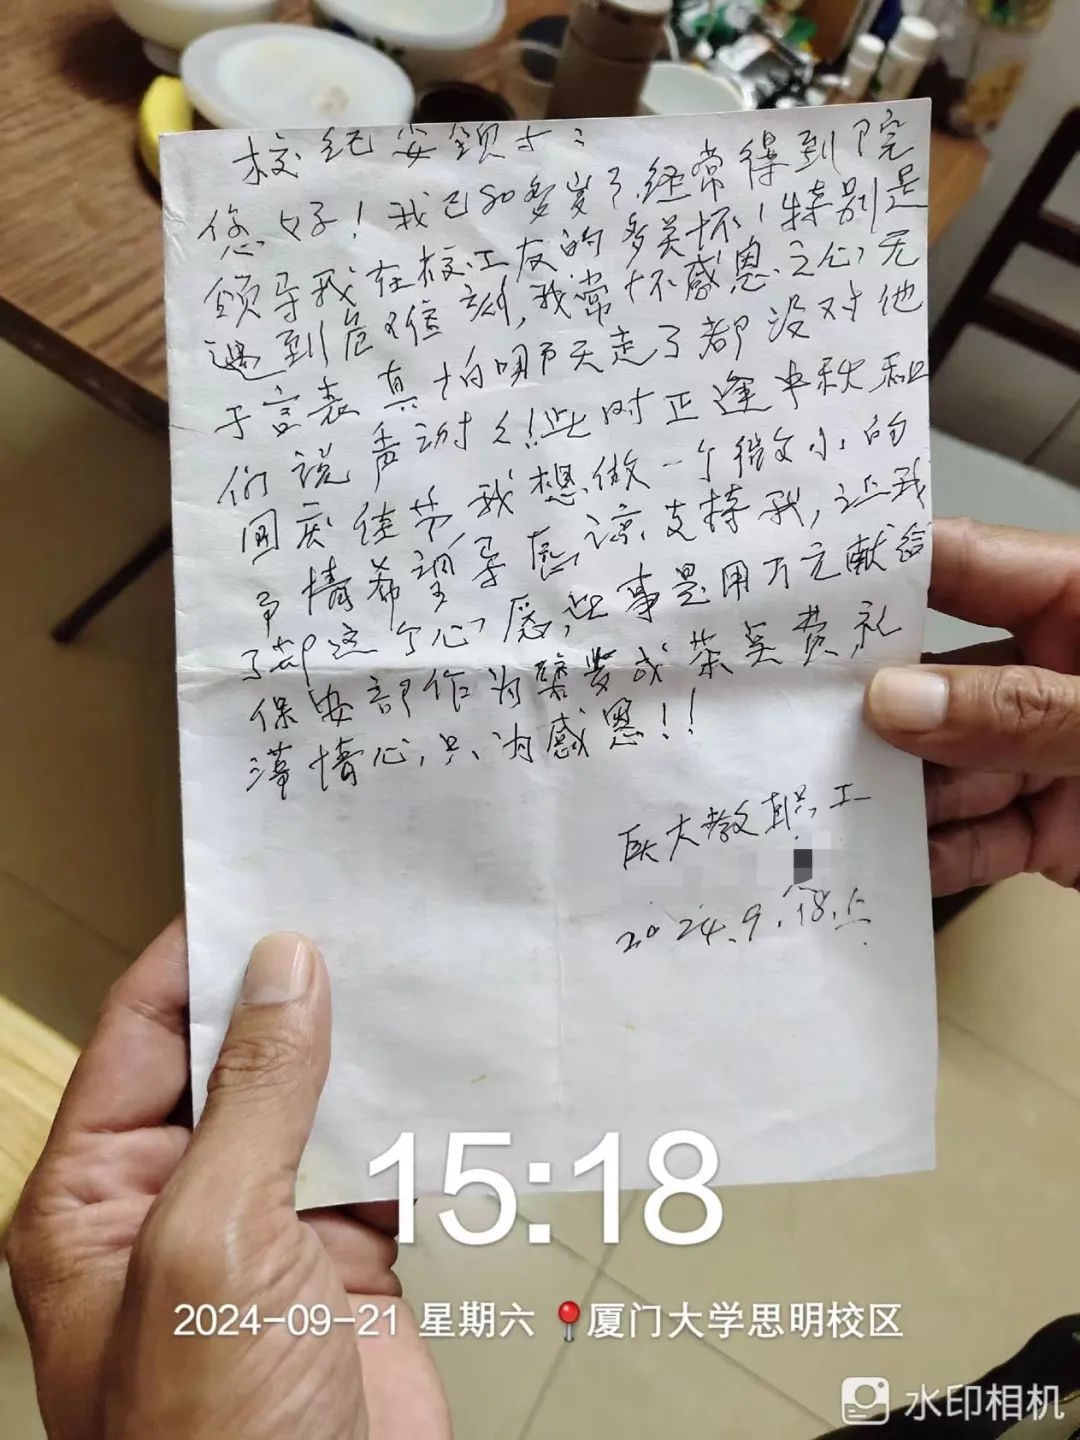 校纪安领
您好！我已80多岁了，经常得到院
领导我在校工友的多关怀！特别是
遇到危难 刻，我常怀感恩之心，无
于言表，真怕哪天走了都没对他
们说声谢 ！此时正逢中秋和
国庆佳节，我想做一个微小的
事情，希望 谅支持我，让我
了却这个心愿，此事是用万元献给
保安部作为 茶 费，礼
薄情 心，只为感恩！！
厦大教职工
2024.9.18.上
15:18
2024-09-21 星期六 厦门大学思明校区
水印相机